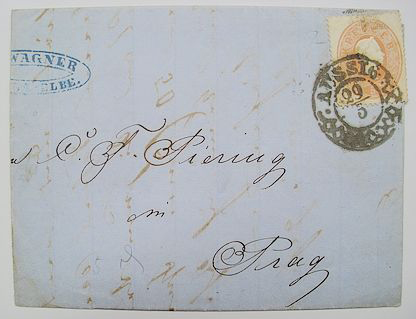 WAGNER
ELBE.
AUSSIG
29
5
C. F. Piering
in
Prag